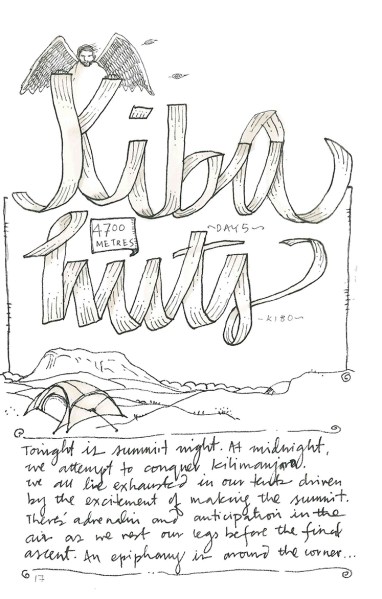 Kiba
huts
4700
METRES
~DAY5~
~KIBO~
Tonight is summit night. At midnight,
we attempt to conquer Kilimanjaro.
We all lie exhausted in our tents driven
by the excitement of making the summit.
There's adrenalin and anticipation in the
air as we rest our legs before the final
ascent. An epiphany is around the corner...
17